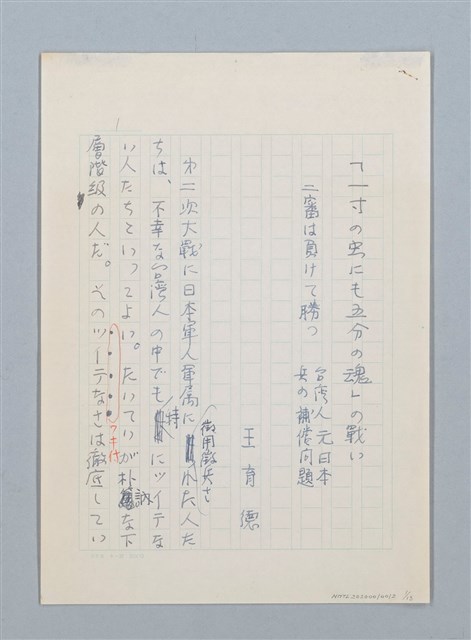 「一寸の虫にも五分の魂」の戦い
二審は負けて勝つ
台湾人元日本
兵の補償問題
王育德
第二次大戦に日本軍人軍属に
徴用徴兵さ
れた人た
ちは、不幸な台湾人の中でも
特
にツイテな
い人たちといってよい。たいていが朴
訥
な下
層階級の人だ。そのツーテなさは徹底してい
1
1/13